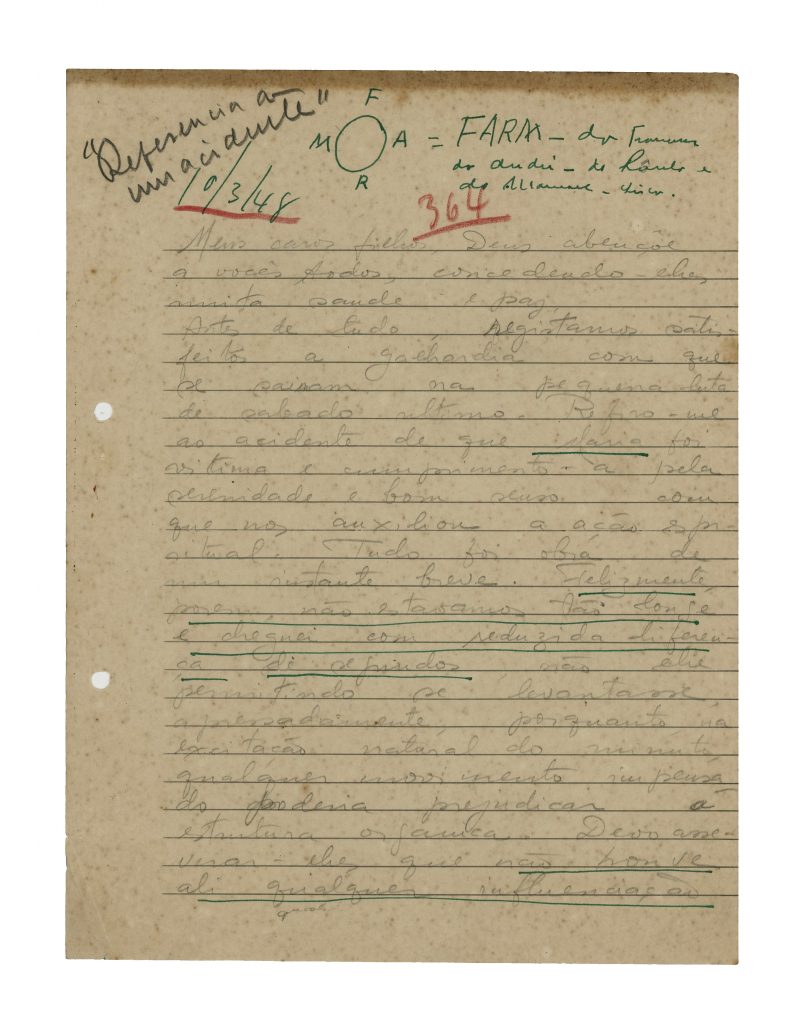 "Referencia a
um acidente"
10/3/48
F
M A = FARM - do
R
do André - de Paulo e
do
364
Meus caros filhos, Deus abençôe
a vocês todos, concedendo-lhes
muita saude e paz.
Antes de tudo, registamos satis-
feitos a galhardia com que
se sairam na pequena luta
de sabado ultimo. Refiro-me
ao acidente de que Maria foi
vitima e cumprimento-a pela
serenidade e bom senso com
que nos auxiliou a ação espi-
ritual. Tudo foi obra de
um instante breve. Felizmente,
porem, não estavamos tão longe
e cheguei com reduzida diferen-
ça de segundos, não lhe
permitindo se levantasse
apressadamente, porquanto, na
excitação natural do minuto,
qualquer movimento impensa-
do poderia prejudicar a
estrutura organica. Devo asse-
verar-lhes que não houve
ali qualquer influenciação